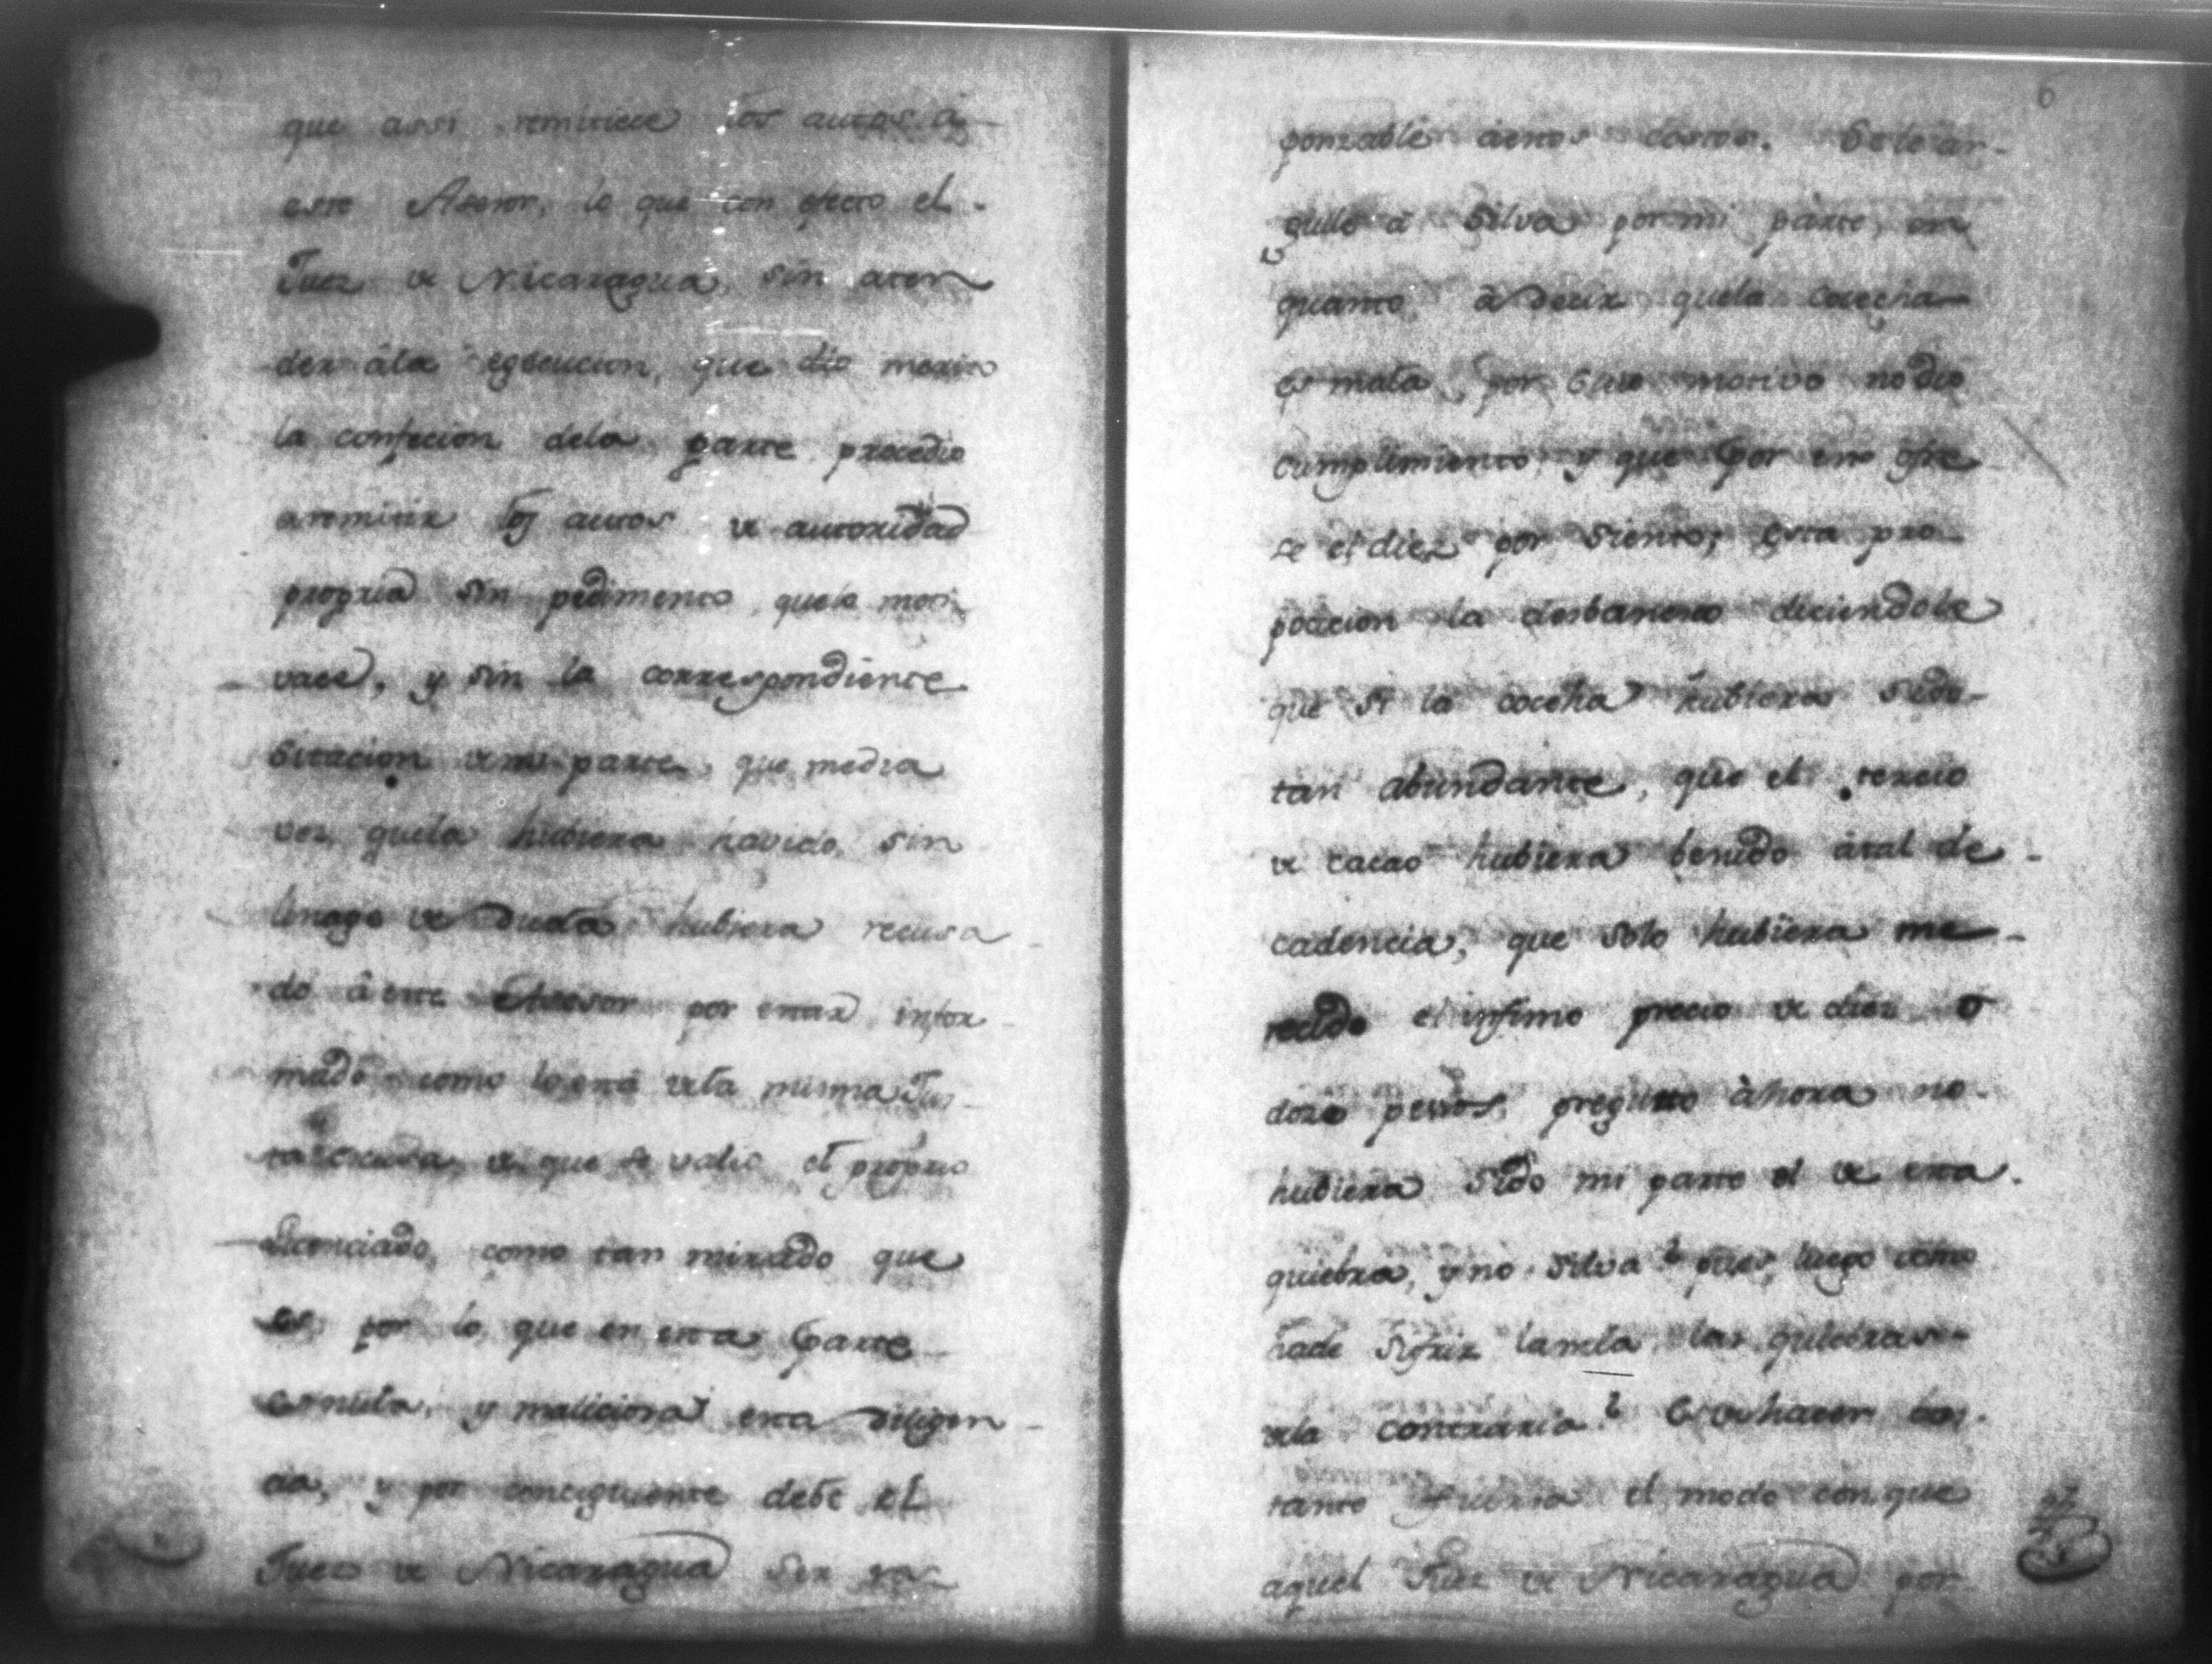 que assi remitiese los autos á
este Asesor, lo que con efecto el
Juez de Nicaragua, sin aten
der âla egecucion, que dio merito
la confecion dela parte procedio
aremitir los autos de autoridad
propria sin pedimento, quele moti
vace, y sin la correspondiente
Citacion de mi parte, que media
vez quela hubiera havido, sin
linage de Duda hubiera recusa
do â este Asesor por estar infor
mado como lo está dela misma Jus
ta escusa, de que se valio el proprio
Licenciado, como tan mirado que
es, por lo que en esta parte
es nula, y maliciosa esta diligen
cia, y por conciguiente debe el
Juez de Nicaragua Ser res
6
ponzable aestos costos. Sele ar-
gulle â Silva por mi parte, en
quanto, â Decir quela cocecha
es mala, por cuio motivo no dio
cumplimiento, y que por eso ofre
se el diez por Siento; esta pro
pocicion la desbanesco diciendole
que si la cocecha hubiera Sido
tan abundante, que el tercio
de cacao hubiera benido âtal de
cadencia, que solo hubiera me
recido el infimo precio de diez o
doze pessos, pregunto àhora no
hubiera Sido mi parte el de esta
quiebra, y no Silva? pues, luego como
hade Sufrir lamia, las quiebras
dela contraria? Es de hacer bas
tante fuerza el modo con que
aquel Juez de Nicaragua por